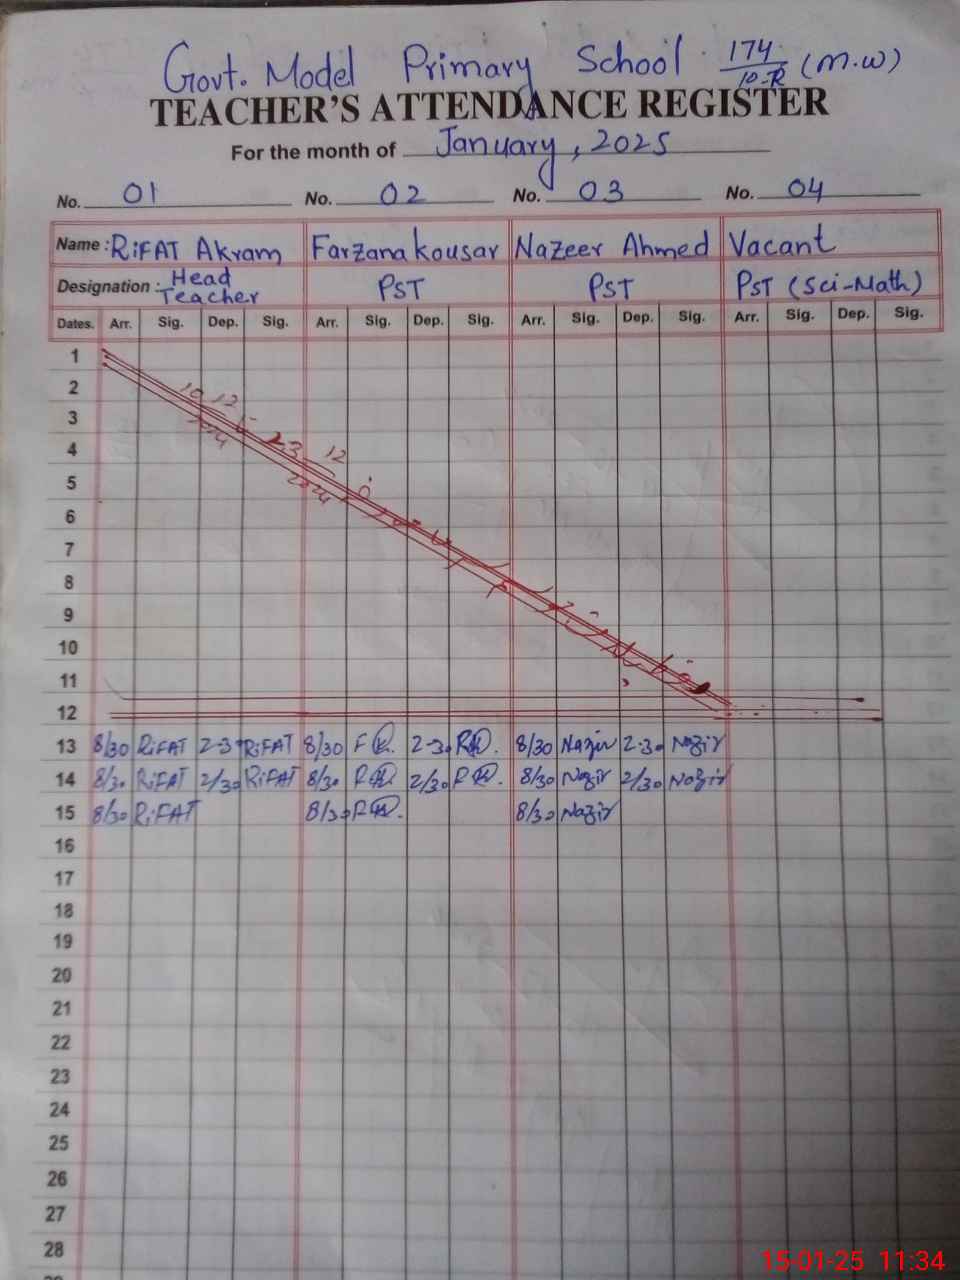 Govt. Model Primary School 174/10-R (M.W)
TEACHER'S ATTENDANCE REGISTER
For the month of January, 2025
No. 01 No. 02 No. 03 No. 04
Name : RiFAT Akram Farzana kousar Nazeer Ahmed Vacant
Designation : Head Teacher PST PST PST (Sci-Math)
Dates. Arr. Sig. Dep. Sig. Arr. Sig. Dep. Sig. Arr. Sig. Dep. Sig. Arr. Sig. Dep. Sig.
1
2
3
4
5
6
7
8
9
10
11
12
13 8/30 RiFAT 2-30 RiFAT 8/30 2-30 8/30 Nazir 2-30 Nazir
14 8/30 RiFAT 2/30 RiFAT 8/30 2/30 8/30 Nazir 2/30 Nazir
15 8/30 RiFAT 8/30 8/30 Nazir
16
17
18
19
20
21
22
23
24
25
26
27
28
15-01-25 11:34